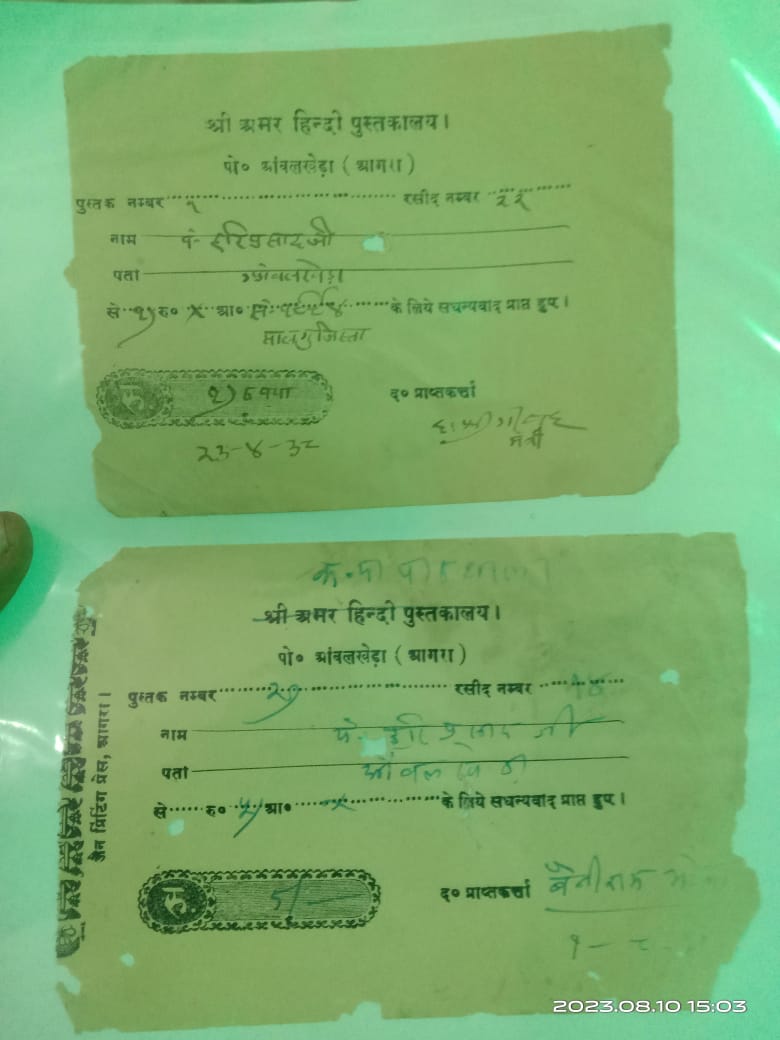 श्री अमर हिन्दी पुस्तकालय।
पो० आंवलखेड़ा ( आगरा )
पुस्तक नम्बर १ रसीद नम्बर २२
नाम पं- हरिप्रसादजी
पता आंवलखेड़ा
से १) रु० × आ० के लिये सधन्यवाद प्राप्त हुए।
रु. १) रुपया
द० प्राप्तकर्त्ता
मंत्री
२३-४-३८
श्री अमर हिन्दी पुस्तकालय।
पो० आंवलखेड़ा ( आगरा )
पुस्तक नम्बर रसीद नम्बर
नाम पं. हरिप्रसाद जी
पता आंवलखेड़ा
से रु० ५) आ० × के लिये सधन्यवाद प्राप्त हुए।
रु. 5/-
द० प्राप्तकर्त्ता
जैन प्रिंटिंग प्रेस, आगरा।
2023.08.10 15:03